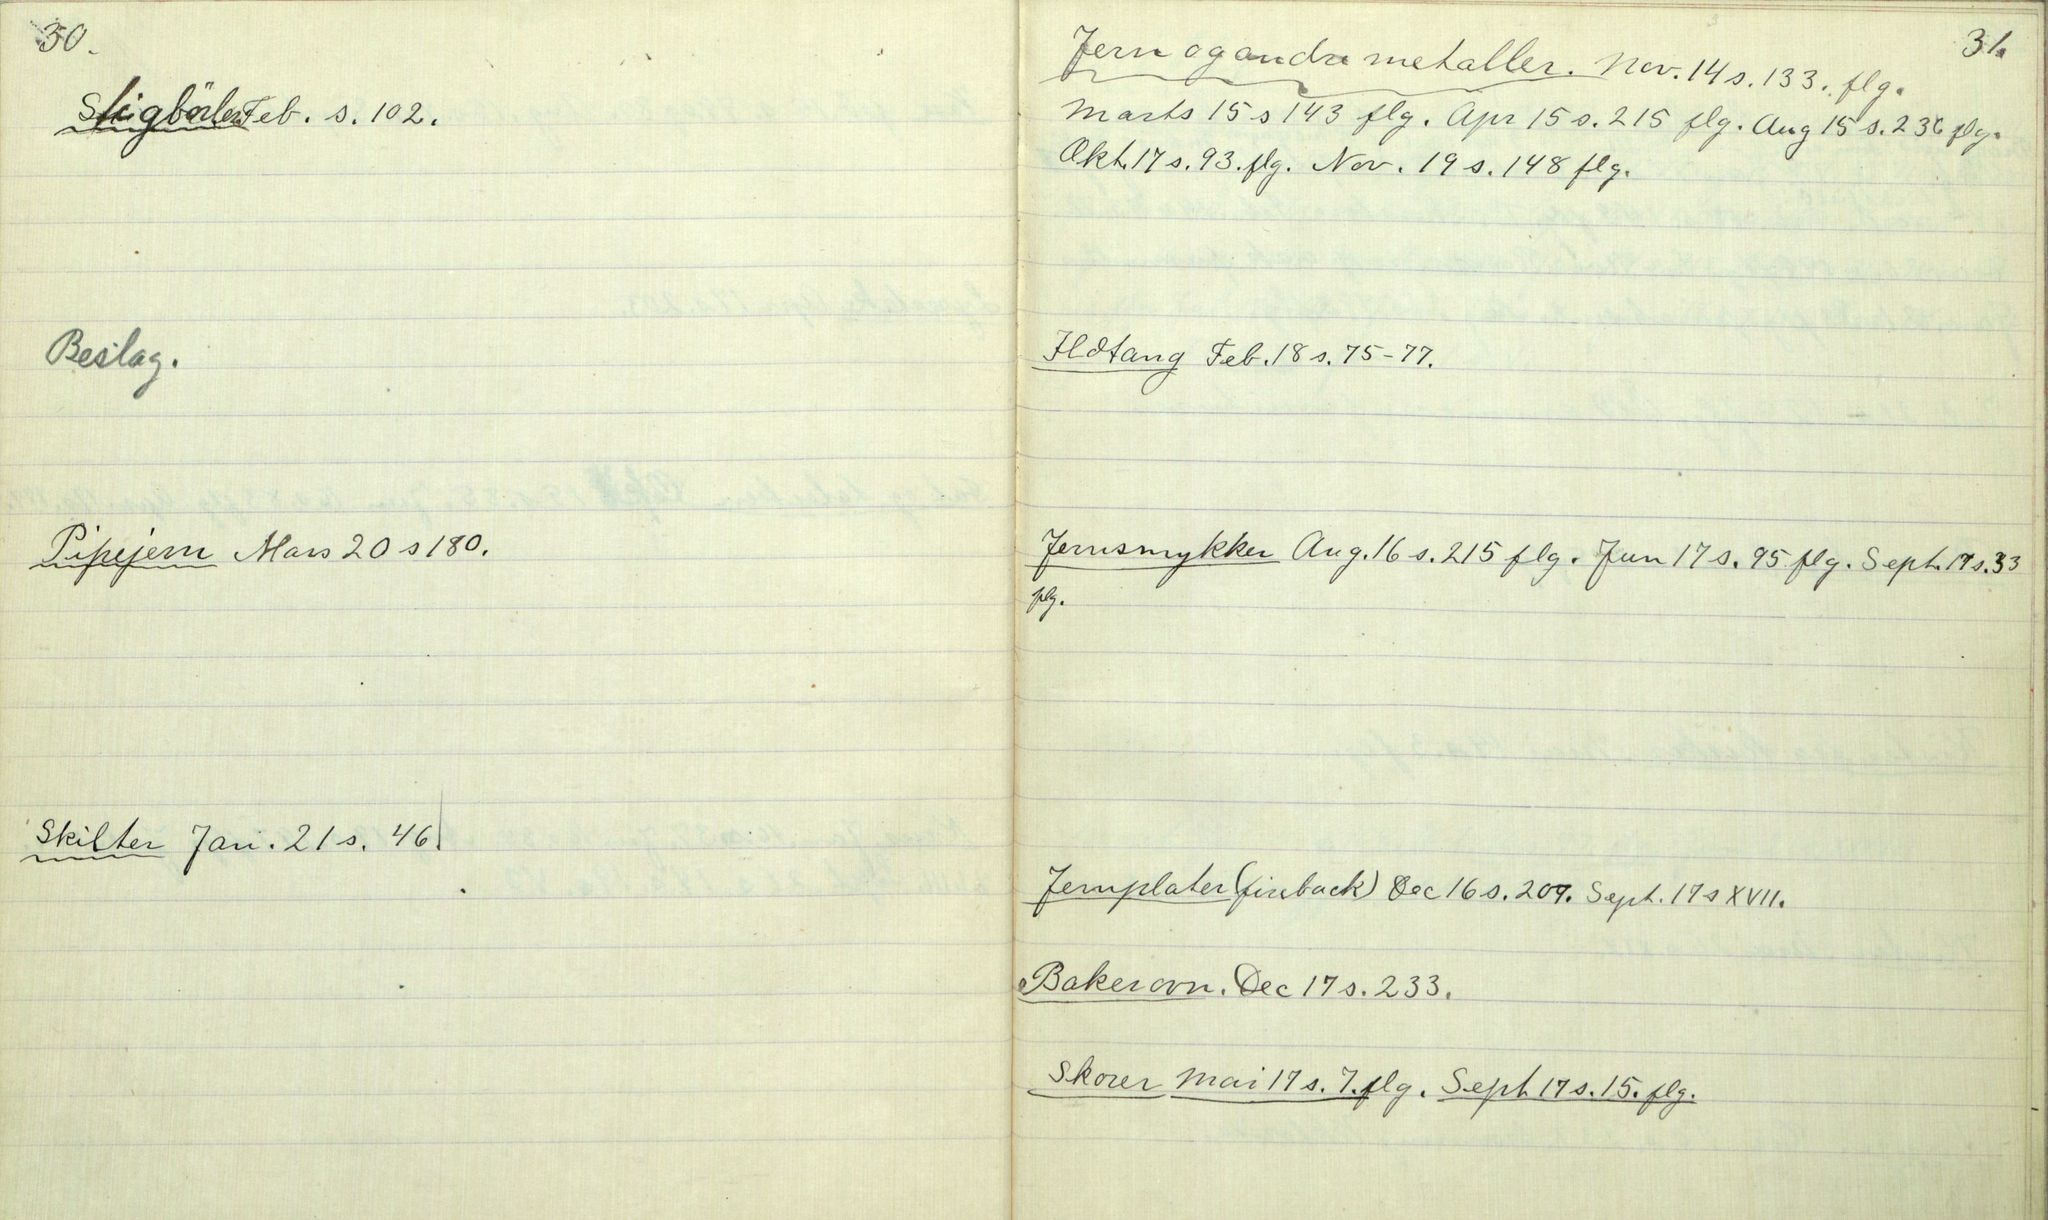 30.
Stigböiler Feb. s. 102.
Beslag.
Pipejern Mars 20 s 180.
Skilter Jan. 21 s. 46
31.
Jern og andre metaller. Nov. 14 s. 133. flg.
Marts 15 s 143 flg. Apr 15 s. 215 flg. Aug 15 s. 236 flg.
Okt. 17 s. 93. flg. Nov. 19 s. 148 flg.
Ildtang Feb. 18 s. 75-77.
Jernsmykker Aug. 16 s. 215 flg. Jun 17 s. 95 flg. Sept. 17 s. 33
flg.
Jernplater (fireback) Dec 16 s. 209. Sept. 17 s XVII.
Bakerovn. Dec 17 s. 233.
Skorer Mai 17 s. 7. flg. Sept 17 s. 15. flg.